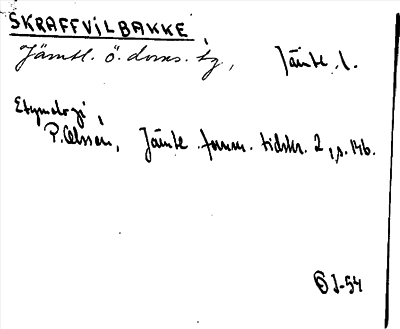 SKRAFFVILBAKKE,
Jämtl. ö. doms. tg, Jämtl. l.
Etymologi,
P. Olsson, Jämtl. fornm. tidskr. 2, s. 146.
OJ-54